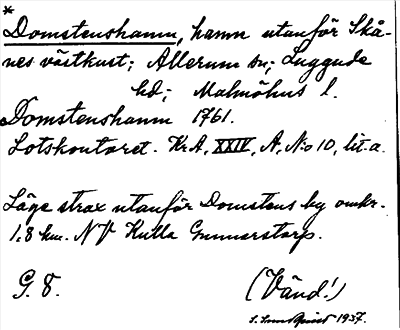 *
Domstenshamn, hamn utanför Skå-
nes västkust; Allerum sn; Luggude
hd; Malmöhus l.
Domstenshamn 1761.
Lotskontoret. KrA, XXIV, A, No 10, lit. a.
Läge strax utanför Domstens by omkr.
1,8 km. NV Kulla Gunnarstorp.
G. T. (Vänd!)
S. Lundquist 1937.